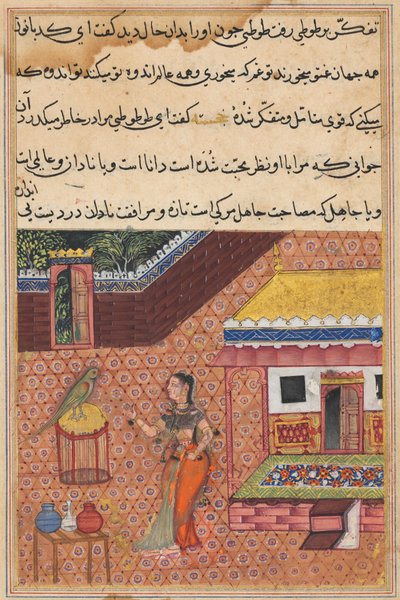 تفکّر بر طوطی رفت طوطی چون اورا بدان حال دید کفت ای کدبانو
همه جهان غم تو میخورند تو غم که میخوری و همه عالم اندوه تو میکند تو اندوه که
میکنی که قوی متامل و متفکر شدهٔ خجسته کفت ای طوطی مراد رخاطر میکدر آن
جوانی که مرا با او نظر محبت شده است دانا است و یا نادان و عالمی است
و یا جاهل که مصاحبت جاهل مرکی است تازه و مرافقت نادان دردیست بی